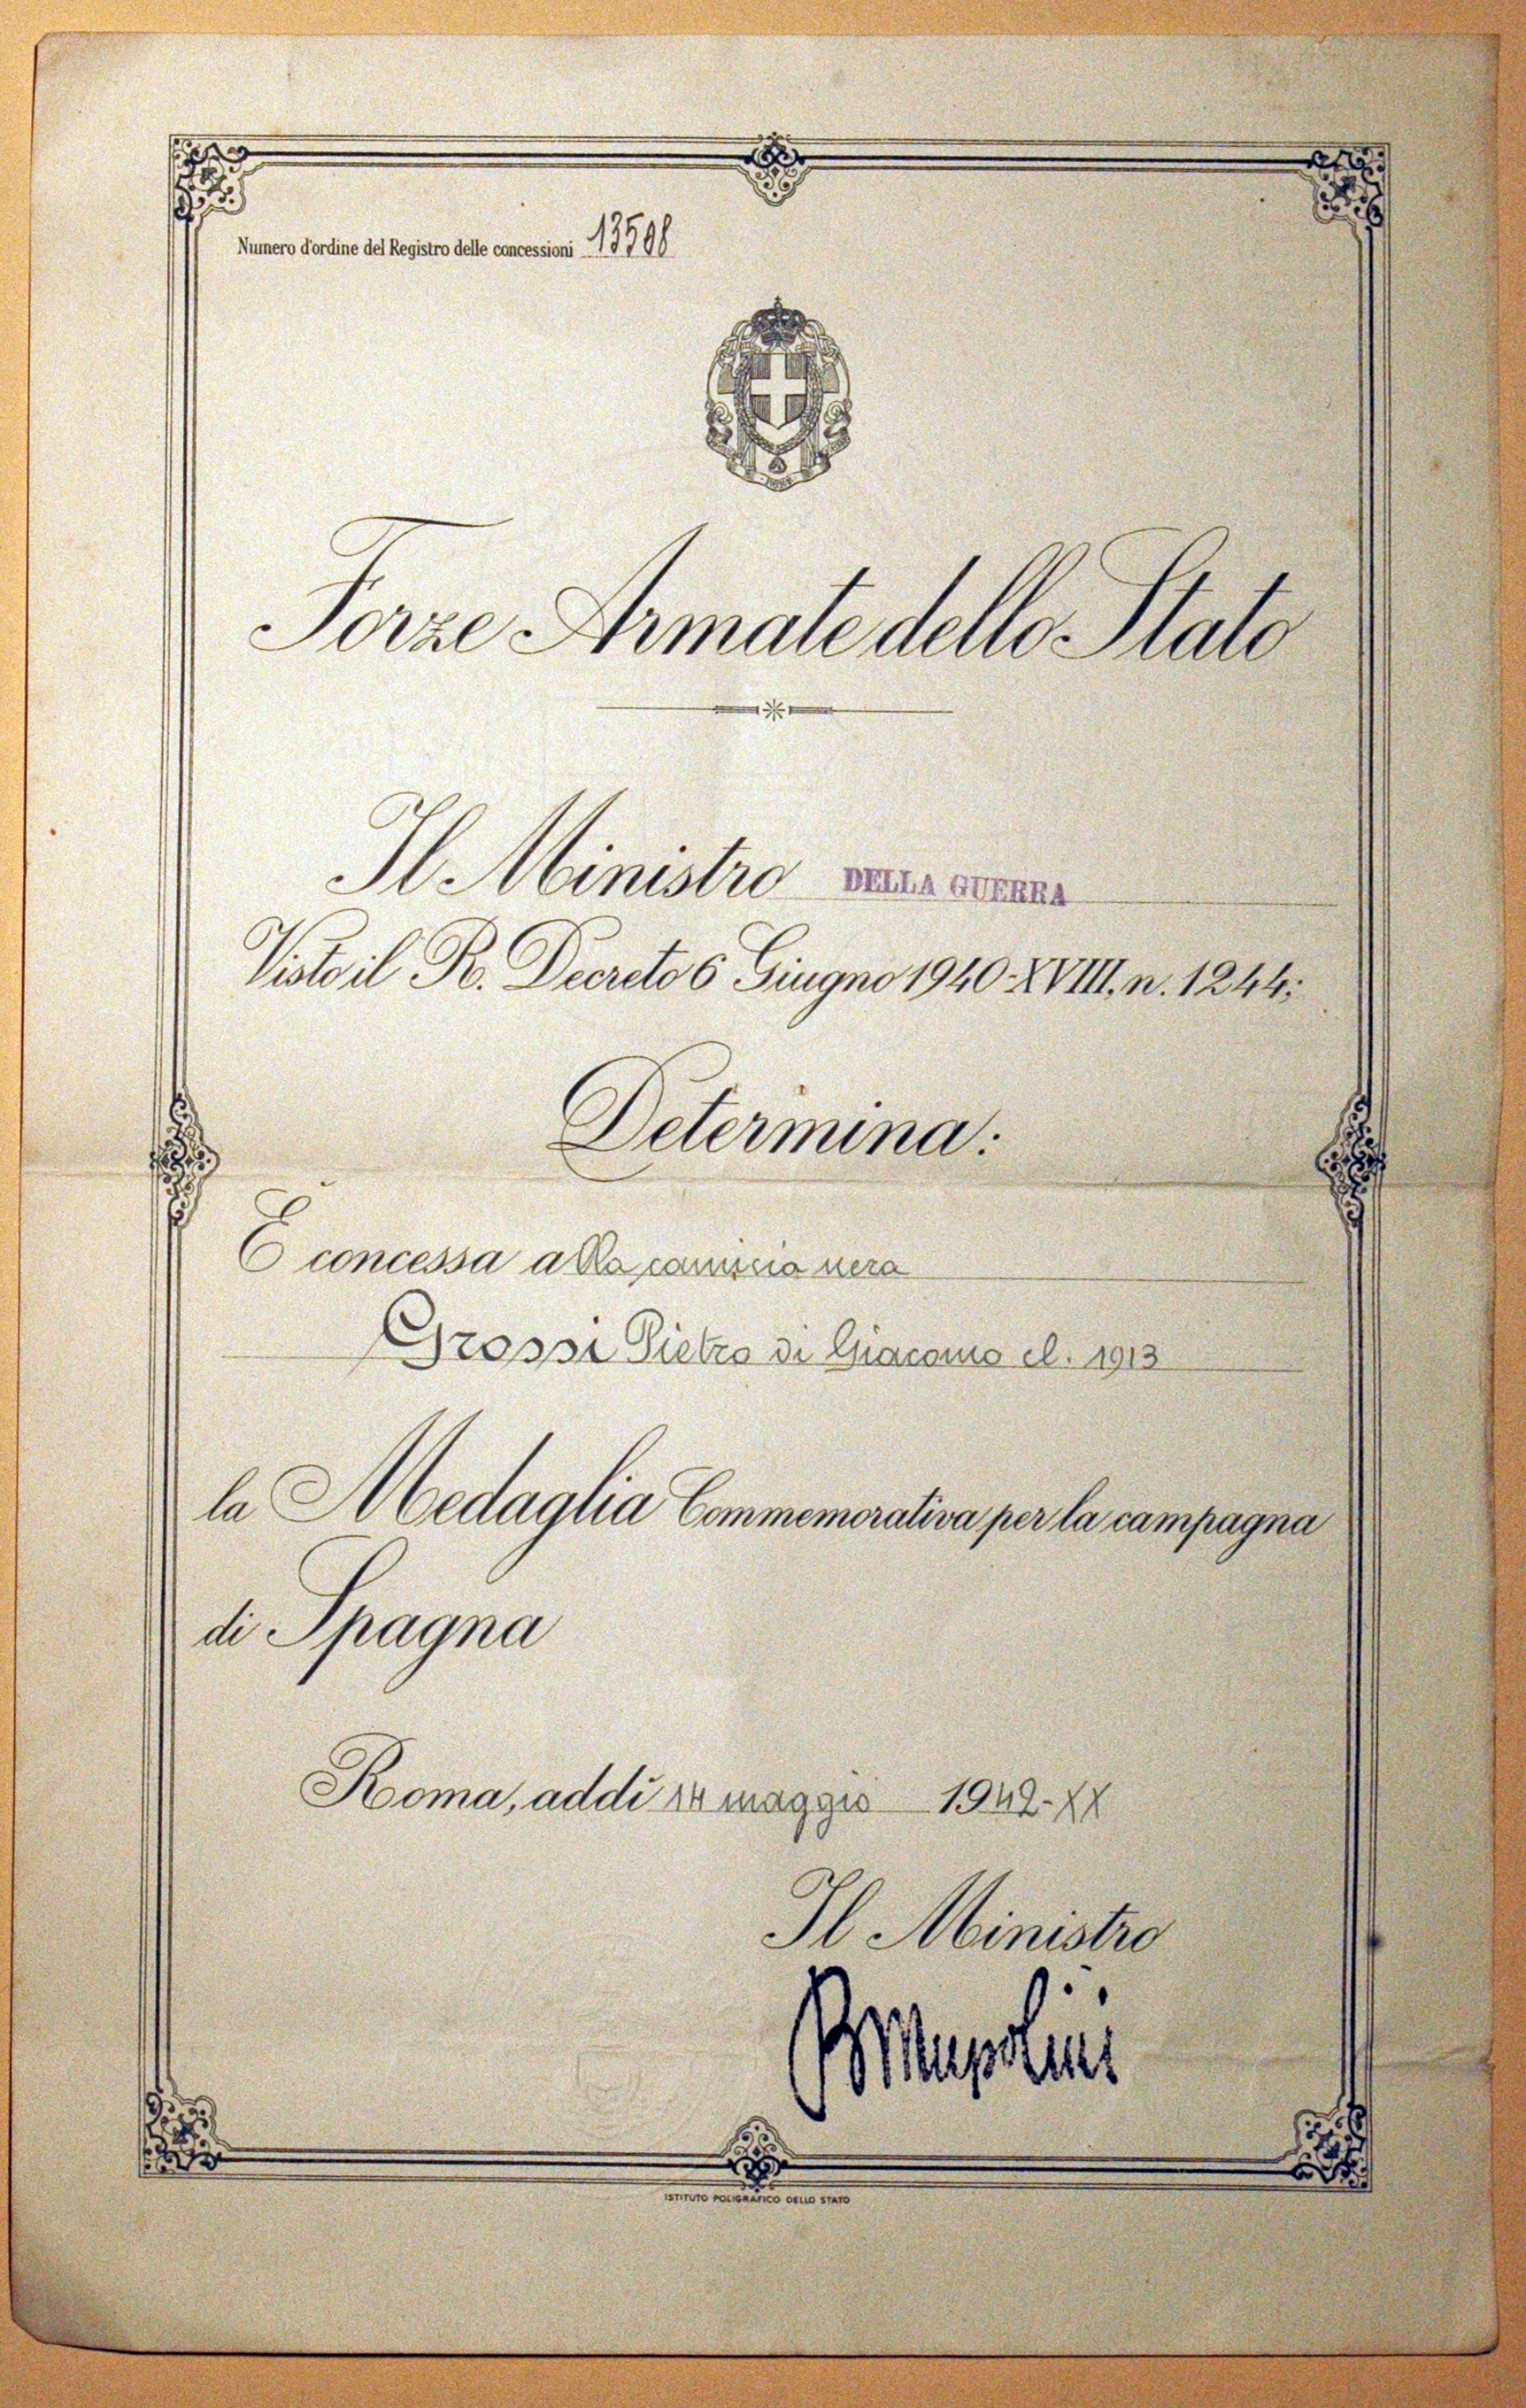 Numero d'ordine del Registro delle concessioni 13508
FERT
Forze Armate dello Stato
Il Ministro DELLA GUERRA
Visto il R. Decreto 6 Giugno 1940-XVIII, n. 1244;
Determina:
È concessa alla camicia nera
Grossi Pietro di Giacomo cl. 1913
la Medaglia Commemorativa per la campagna
di Spagna
Roma, addì 14 maggio 1942-XX
Il Ministro
BMussolini
ISTITUTO POLIGRAFICO DELLO STATO